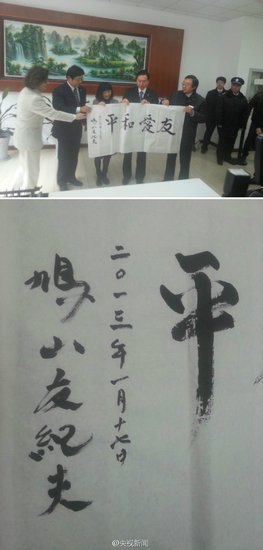 友愛和平
鳩山友紀夫
平
二〇一三年一月十七日
鳩山友紀夫
@央视新闻